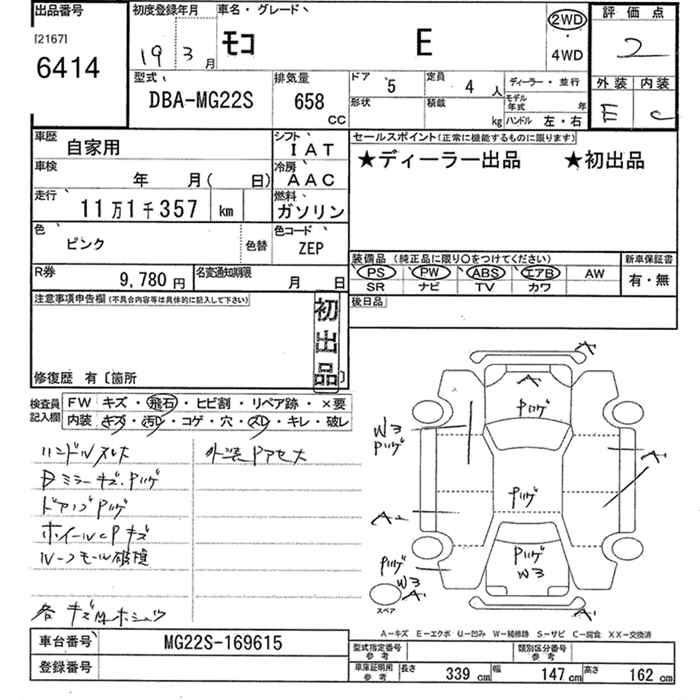 出品番号
[2167]
6414
初度登録年月
19 3月
車名・グレード
モコ E
2WD
4WD
評価点
2
外装 内装
E C
型式
DBA-MG22S
排気量
658
CC
ドア 5
定員 4 人
ディーラー・並行
形状
積載 kg
モデル年式 年
ハンドル 左・右
車歴
自家用
シフト
IAT
車検
年 月( 日)
冷房
AAC
走行
11万1千357 km
燃料
ガソリン
色
ピンク
色替
色コード
ZEP
R券
9,780円
名変通知期限
月 日
セールスポイント(正常に機能するものに限ります)
★ディーラー出品 ★初出品
装備品 (純正品に限り○をつけてください)
新車保証書
PS PW ABS エアB AW
SR ナビ TV カワ
有・無
後日品
注意事項申告欄(不具合内容等は具体的に記入して下さい)
初出品
修復歴 有〔箇所
検査員記入欄
FW キズ・飛石・ヒビ割・リペア跡・×要
内装 キズ・汚レ・コゲ・穴・スレ・キレ・破レ
ハンドルスレ大
外装Pアセ大
Dミラーキズ・Pハゲ
ドアノブPハゲ
ホイールCPキズ
ルーフモール破損
各キズ
A
A
Pハゲ
W3
Pハゲ
A
Pハゲ
A
Pハゲ
W3
Pハゲ
W3
A
A
スペア
A−キズ E−エクボ U−凹み W−補修跡 S−サビ C−腐食 XX−交換済
車台番号
MG22S-169615
登録番号
型式指定番号
参考
類別区分番号
参考
車庫証明用
参考
長さ 339 cm
幅 147 cm
高さ 162 cm